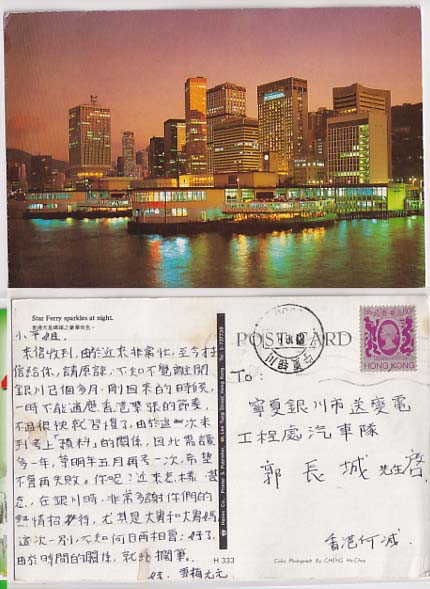 Star Ferry sparkles at night.
香港天星碼頭之豪華夜色。
小平姐:
來信收到,由於近來非常忙,至今才
信給你,請原諒,不知不覺離開
銀川已個多月,剛回來的時候,
一時不能適應香港緊張的節奏,
不過很快就習慣了,由於這一次未
到考上預科的關係,因此需讀
多一年,等明年五月再考一次,希望
不會再失敗。你呢?近來怎樣?甚
念,在銀川時,非常多謝你們的
熱情招待,尤其是大舅和大舅媽
這次一別,不知何日再相會,好了,
由於時間的關係,就此擱筆。
妹,雪梅
POSTCARD
HONG KONG
To:
寧夏銀川市送變電
工程處汽車隊
郭長城 先生啓
香港何
H 333
Color Photograph By CHENG Ho-Choy